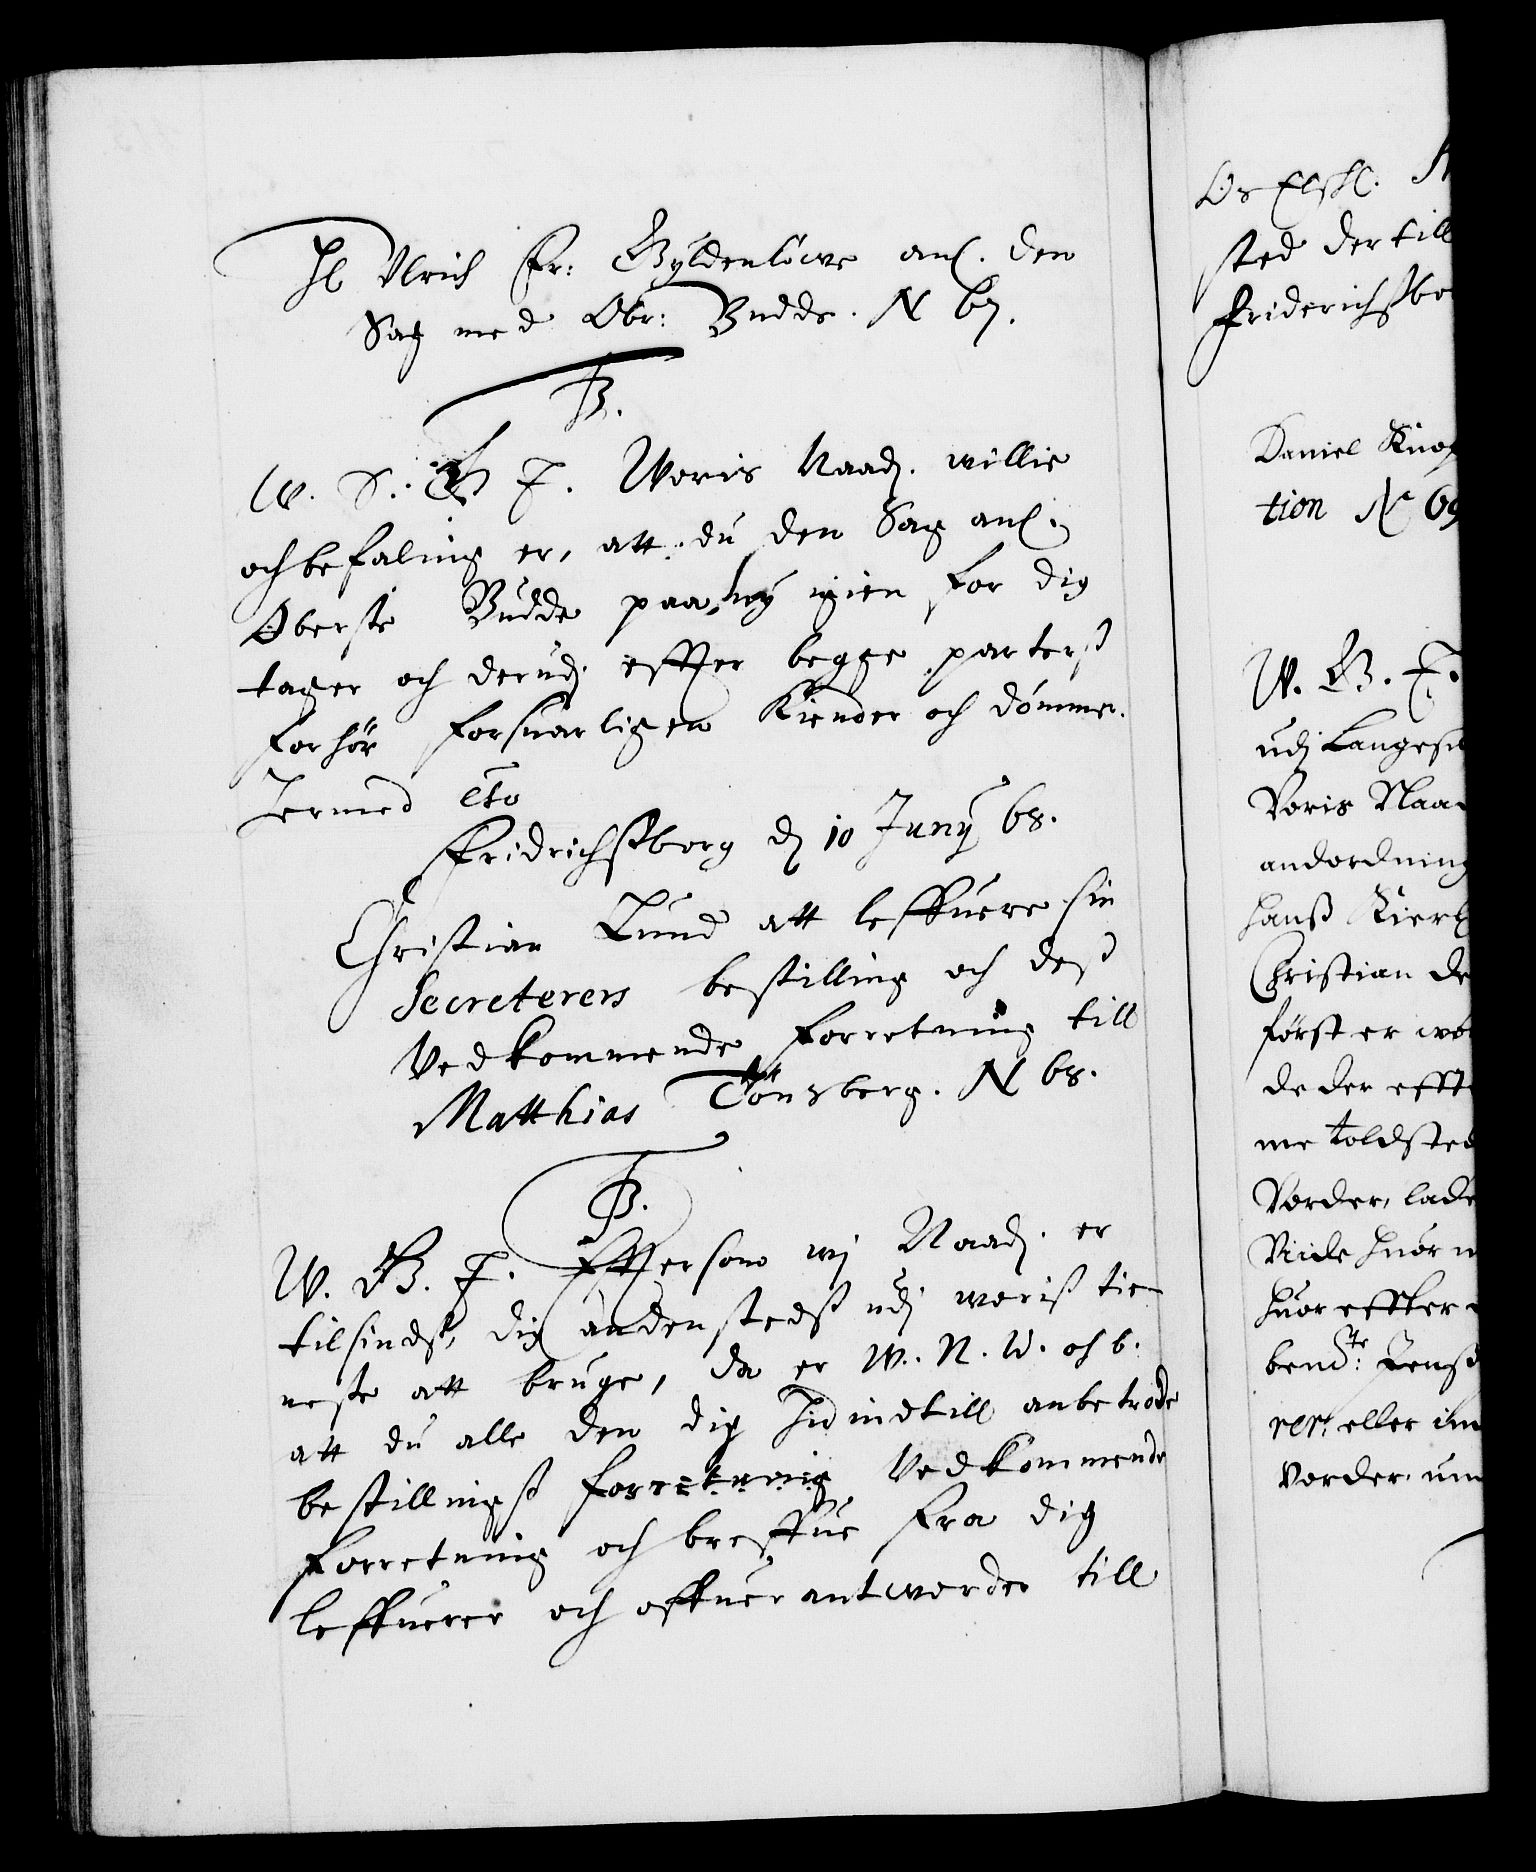 Hl Ulrich Fr: Gyldenlöwe anl. den
Sag med Obr: Budde. N 67.
F3.
W. S. G T. Woris Naad. willie
och befaling er, att du den Sag anl.
Oberste Budde paa ny igien for dig
tager och derudj effter begge parterß
forhör forsuarligen Kiender och dömmer.
Dermed etc
Fridrichßborg dj 10 Junij 68.
Christian Lund att leffuere sin
Secreterers bestilling och deß
Vedkommende forretning till
Matthias Tönsberg. N 68.
F3.
W. G. T. Effter som wj Naadj. er
tilsindß, dig andenstedß udj woriß tie-
neste att bruge, da er W. N. W. och b.
att du alle den dig hid indtill anbetrode
bestillingß forretning Vedkommende
forretning och breffue fra dig
leffuerer och offuerantworder till
Os Elskl.
sted der till
Friderichßbo
Daniel Knof
tion No 69
W. G. T.
udj Langesu
Voris Naa
andordning
hanß Kier
Christian de
först er wo
de der efft
me toldsted
Vorder, lade
Viide huor
huor effter
bendte: Jenß
rer, eller im
Vorder. um